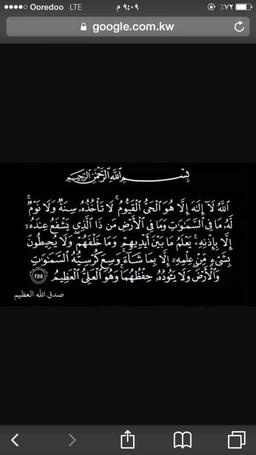 Ooredoo LTE ٩:٠٩ م ٪٧٢
google.com.kw
بِسْمِ اللَّهِ الرَّحْمَٰنِ الرَّحِيمِ
اللَّهُ لَا إِلَٰهَ إِلَّا هُوَ الْحَيُّ الْقَيُّومُ ۚ لَا تَأْخُذُهُ سِنَةٌ وَلَا نَوْمٌ ۚ
لَّهُ مَا فِي السَّمَاوَاتِ وَمَا فِي الْأَرْضِ ۗ مَن ذَا الَّذِي يَشْفَعُ عِندَهُ
إِلَّا بِإِذْنِهِ ۚ يَعْلَمُ مَا بَيْنَ أَيْدِيهِمْ وَمَا خَلْفَهُمْ ۖ وَلَا يُحِيطُونَ
بِشَيْءٍ مِّنْ عِلْمِهِ إِلَّا بِمَا شَاءَ ۚ وَسِعَ كُرْسِيُّهُ السَّمَاوَاتِ
وَالْأَرْضَ ۖ وَلَا يَئُودُهُ حِفْظُهُمَا ۚ وَهُوَ الْعَلِيُّ الْعَظِيمُ ٢٥٥
صدق الله العظيم